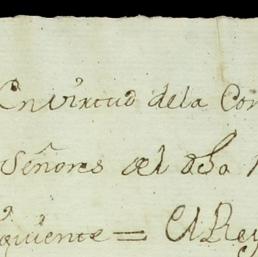 En virtud de la Con
Señores del dho
siguiente = El Rey